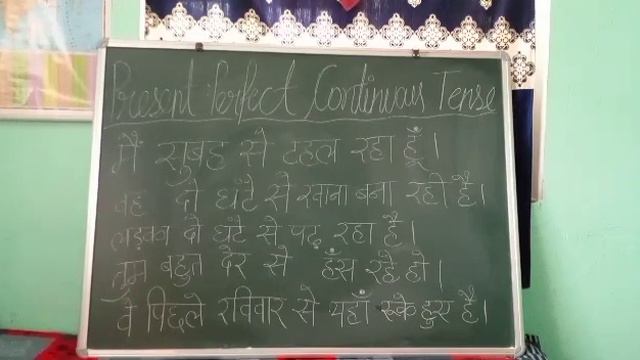 Present Perfect Continuous Tense
मैं सुबह से टहल रहा हूँ।
वह दो घंटे से खाना बना रही है।
लड़का दो घंटे से पढ़ रहा है।
तुम बहुत देर से हँस रहे हो।
वे पिछले रविवार से यहाँ रुके हुए है।